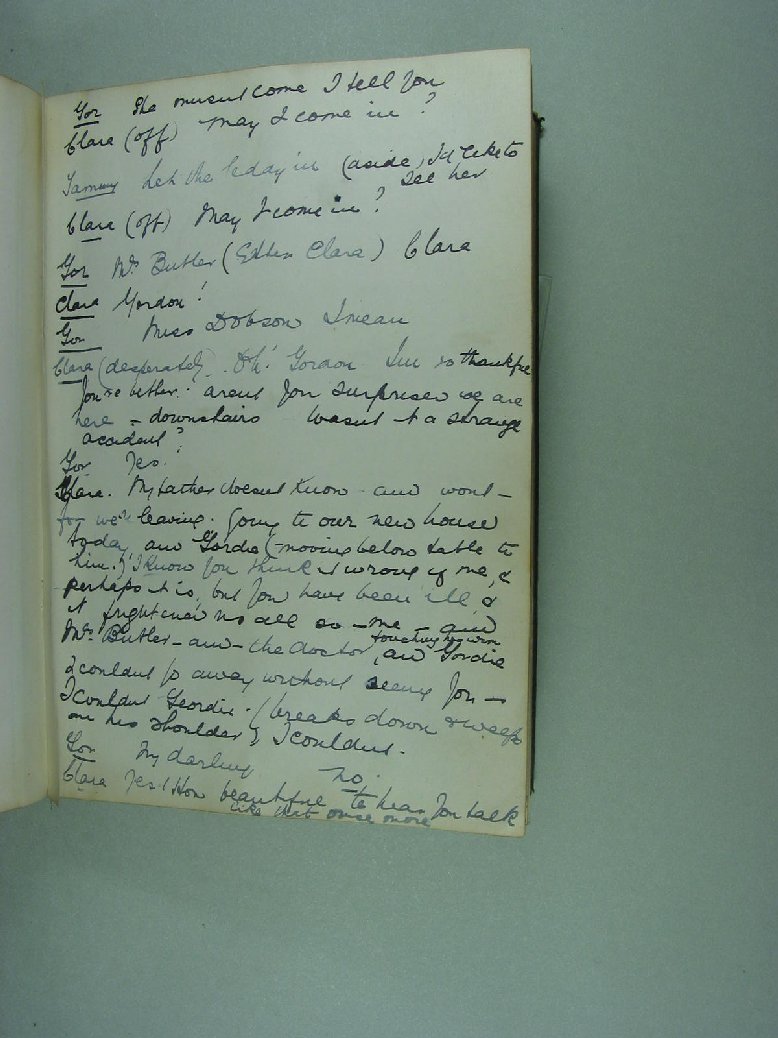 Gor She musn't come I tell you
Clara (off) May I come in?
Tammy Let the leddy in (aside, I'd like to
see her
Clara (off) May I come in?
Gor Mrs Butler (Enter Clara) Clara
Clara Gordon!
Gor Miss Dobson I mean
Clara (desperately). Oh! Gordon I'm so thankful
you're better. arent you surprised we are
here - downstairs wasnt it a strange
accident?
Gor Yes.
Clara. My father doesnt know - and wont -
for we're leaving. Going to our new house
today, and Gordie (moving below table to
him.) I know you think it wrong of me, &
perhaps it is, but you have been ill, &
it frightened us all so - me - and
Mrs Butler - and - the doctor, and Gordie
touching his arm
I couldnt go away without seeing you -
I couldnt Geordie. (breaks down & weeps
on his shoulder) I couldnt.
Gor My darling no.
Clara Yes! How beautiful to hear you talk
like that once more